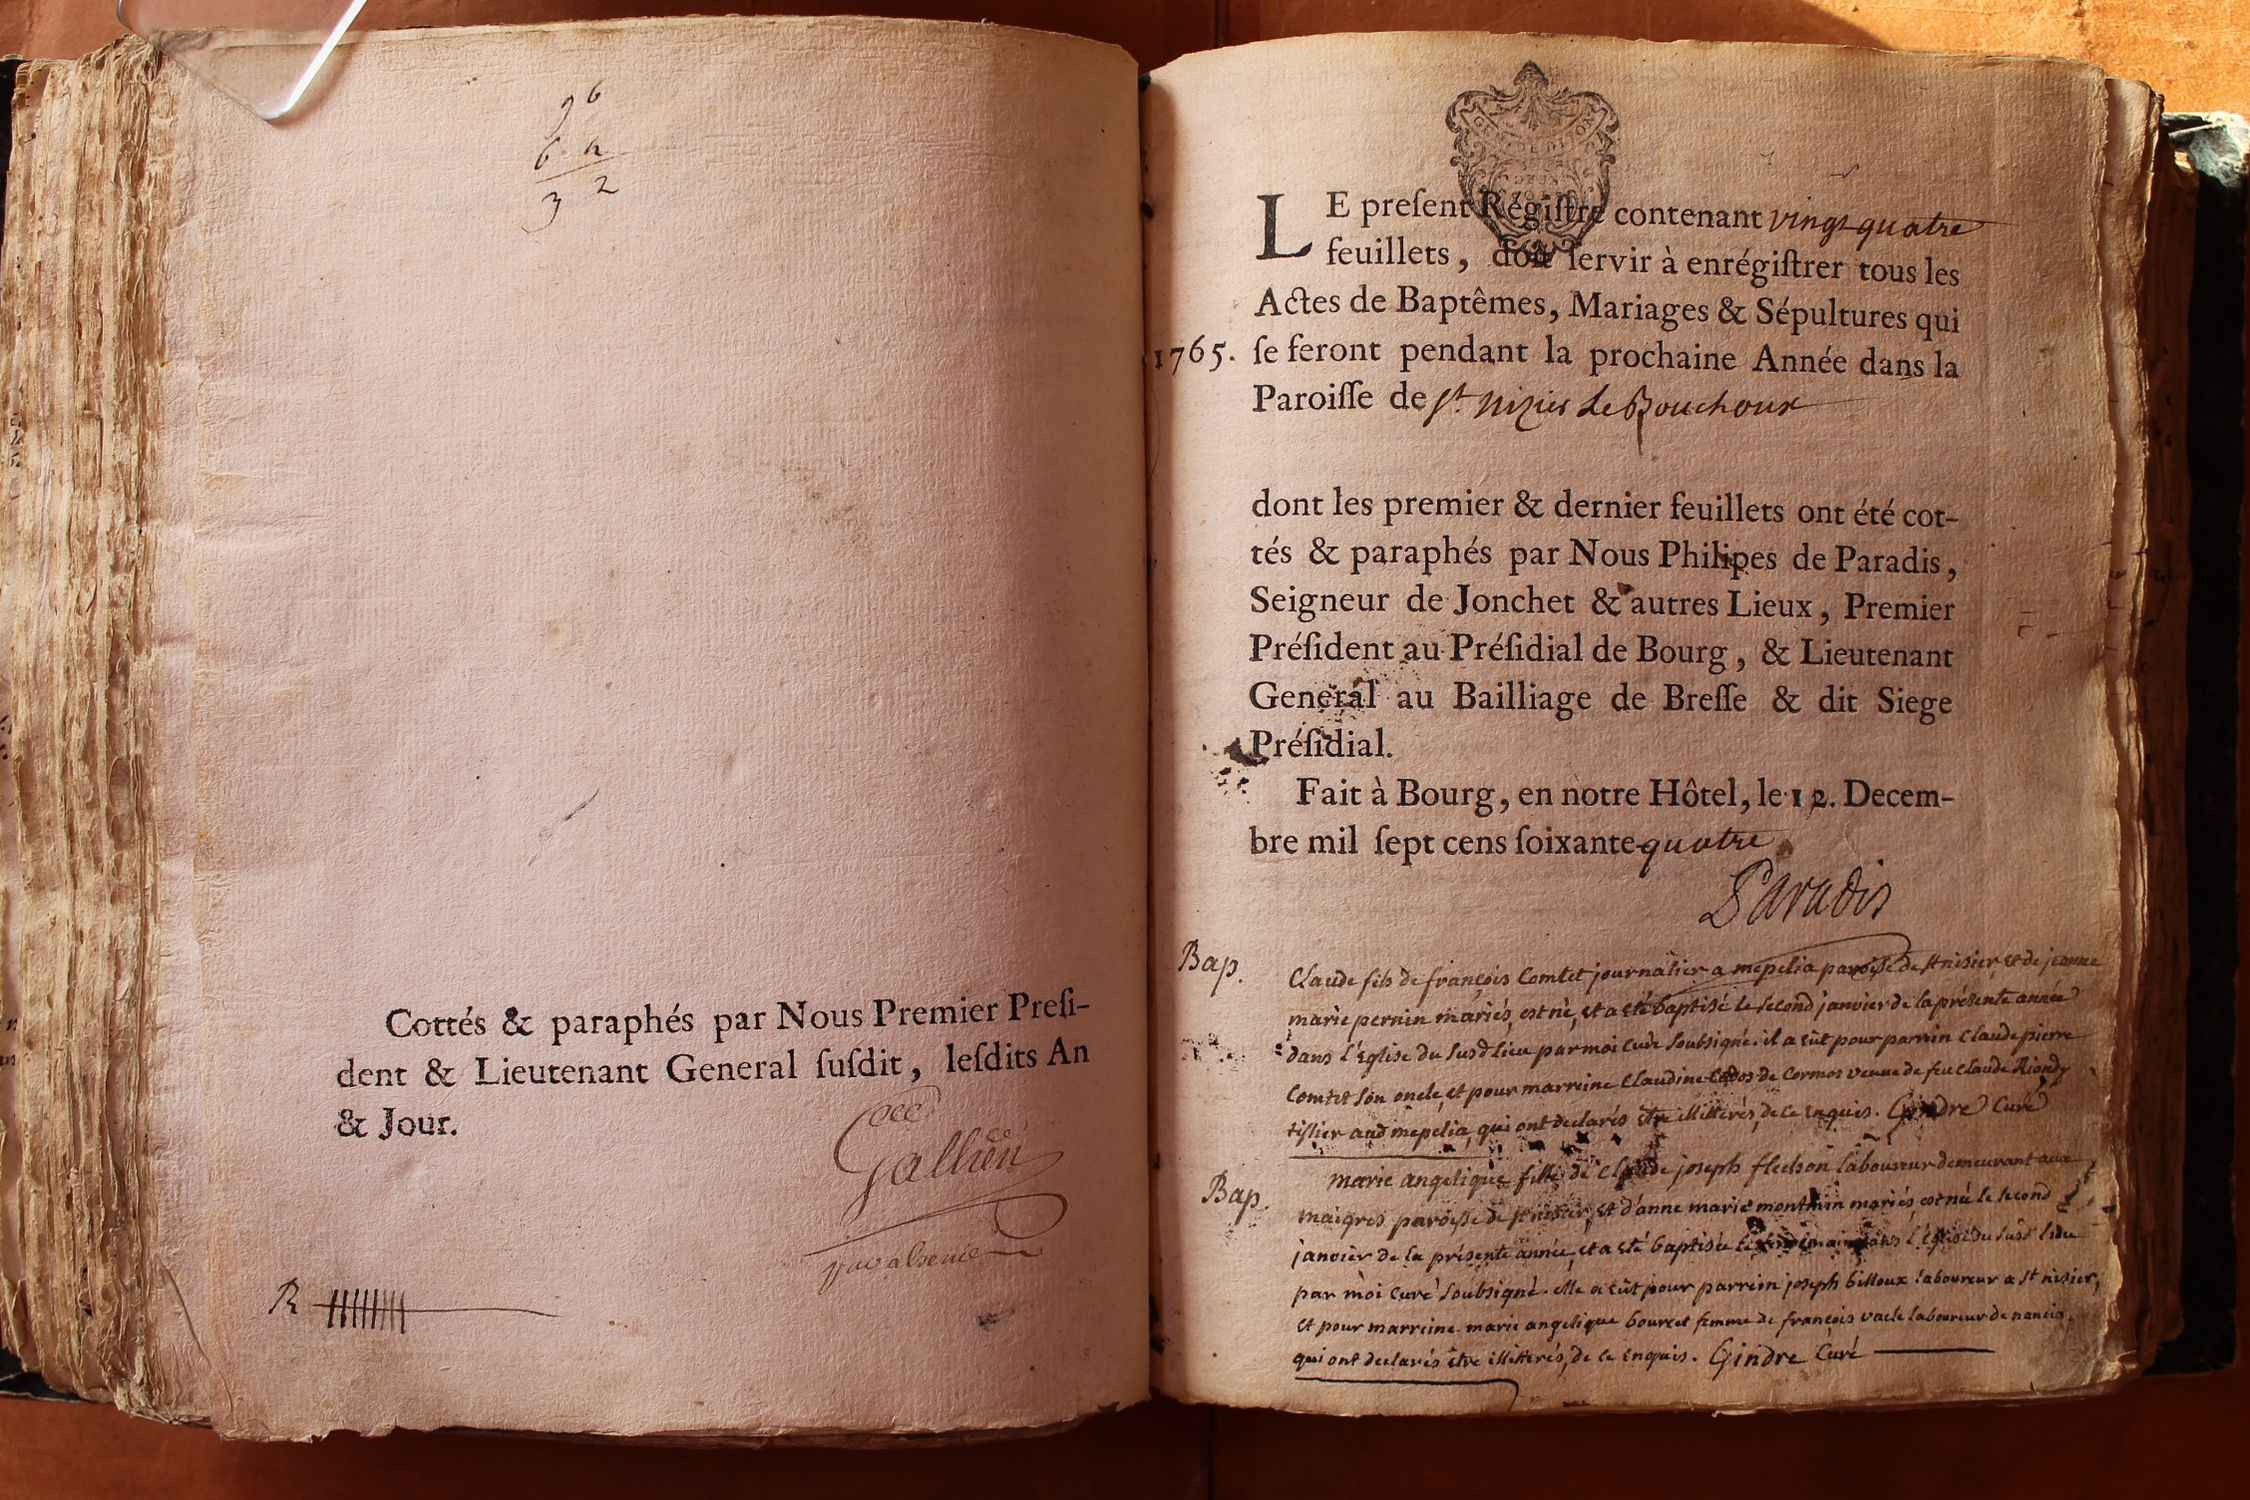 96
64
32
Cottés & paraphés par Nous Premier Preſi-
dent & Lieutenant General ſuſdit, leſdits An
& Jour.
Gallien
R
GEN DE DIJON
LE preſent Régiſtre contenant vingt quatre
feuillets, doit ſervir à enrégiſtrer tous les
Actes de Baptêmes, Mariages & Sépultures qui
1765. ſe feront pendant la prochaine Année dans la
Paroiſſe de St. nizier le Bouchoux
dont les premier & dernier feuillets ont été cot-
tés & paraphés par Nous Philipes de Paradis,
Seigneur de Jonchet & autres Lieux, Premier
Préſident au Préſidial de Bourg, & Lieutenant
General au Bailliage de Breſſe & dit Siege
Préſidial.
Fait à Bourg, en notre Hôtel, le 12. Decem-
bre mil ſept cens ſoixante quatre
Paradis
Bap.
Claude fils de françois Comtet journalier a mepelia paroisse de st nisier, et de jeanne
marie pernin mariés, est né, et a eté baptisé le second janvier de la présente année
dans l'Eglise du susd lieu par moi curé soubsigné. il a eût pour parrein Claude pierre
Comtet son oncle, et pour marreine Claudine de Cormos veuve de feu Claude Riondy
tissier aud mepelia, qui ont declarés etre illitterés, de ce enquis. Gindre Curé
Bap.
marie angelique fille de Claude joseph flechon laboureur demeurant aux
maigres paroisse de st nisier, et d'anne marie montmin mariés, est née le second
janvier de la présente année, et a eté baptisée le dans l'Eglise du susd lieu
par moi curé soubsigné. elle a eût pour parrein joseph billoux laboureur a st nisier,
et pour marreine marie angelique bourcet femme de françois vacle laboureur de
qui ont declarés etre illitterés, de ce enquis. Gindre Curé